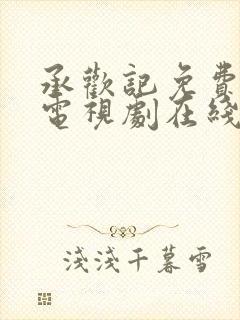 承歡記免費
電視劇在綫
淺淺千暮雪